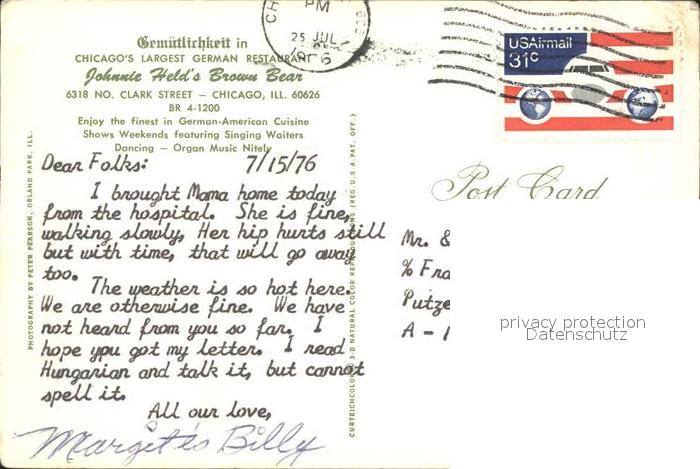 Gemütlichkeit in
CHICAGO'S LARGEST GERMAN RESTAURANT
Johnnie Held's Brown Bear
6318 NO. CLARK STREET — CHICAGO, ILL. 60626
BR 4-1200
Enjoy the finest in German-American Cuisine
Shows Weekends featuring Singing Waiters
Dancing — Organ Music Nitely
PM
25 JUL
USAirmail
31c
Post Card
Dear Folks: 7/15/76
I brought Mama home today
from the hospital. She is fine,
walking slowly, Her hip hurts still
but with time, that will go away
too.
The weather is so hot here.
We are otherwise fine. We have
not heard from you so far. I
hope you got my letter. I read
Hungarian and talk it, but cannot
spell it.
All our love,
Margit és Billy
Mr. &
% Fra
Putze
A - 1
PHOTOGRAPHY BY PETER PEARSON, ORLAND PARK, ILL.
CURTEICHCOLOR® 3-D NATURAL COLOR REPRODUCTIONS (REG. U.S.A. PAT. OFF.)
privacy protection
Datenschutz